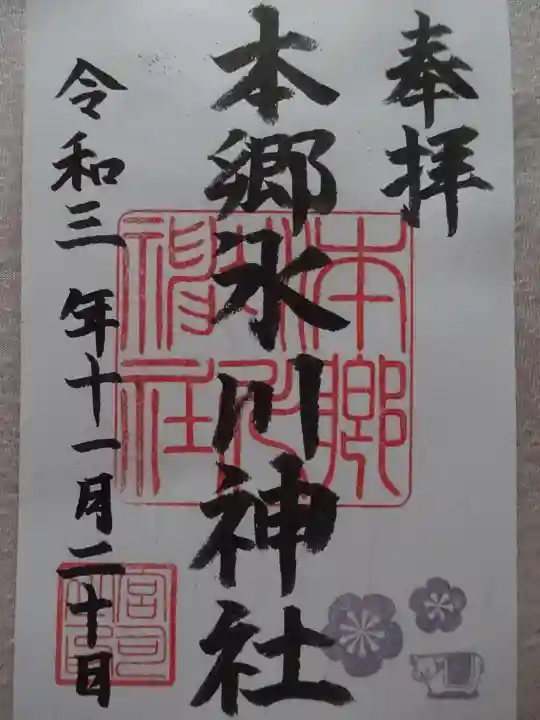 奉拝
本郷氷川神社
令和三年十一月二十日
本郷氷川神社